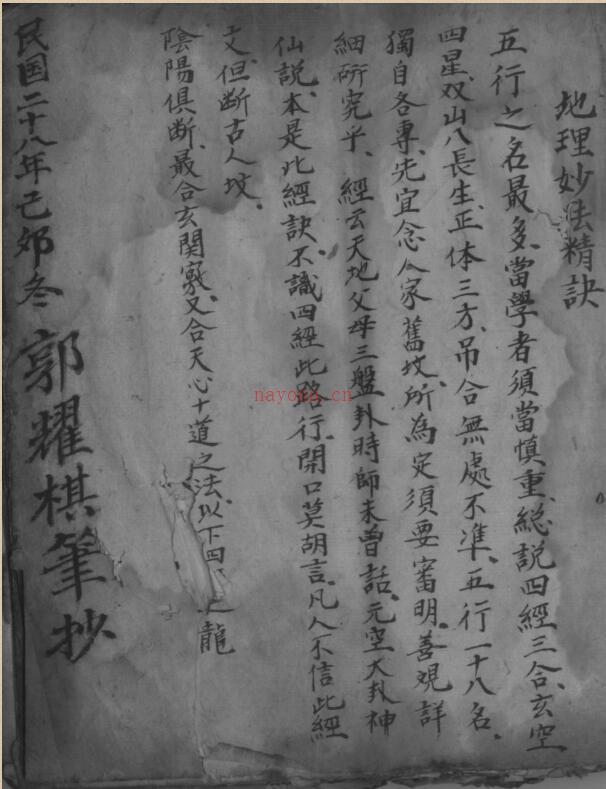 地理妙法精訣
五行之名最多、當學者須當慎重、総説四經三合、玄空
四星、双山八長生、正体三方、吊合無處不準、五行一十八名、
獨自各專、先宜念人家舊坟、所為定須要審明、善覌詳
細研究乎、經云天地父母三盤卦時師未曾話、元空大卦神
仙説、本是此經訣、不識四經此路行、開口莫胡言、凡人不信此經
文、但断古人坟、
陰陽俱断、最合玄関竅、又合天心十道之法、以下四 龍
民国二十八年己夘冬 郭耀棋筆抄
nayona.cn